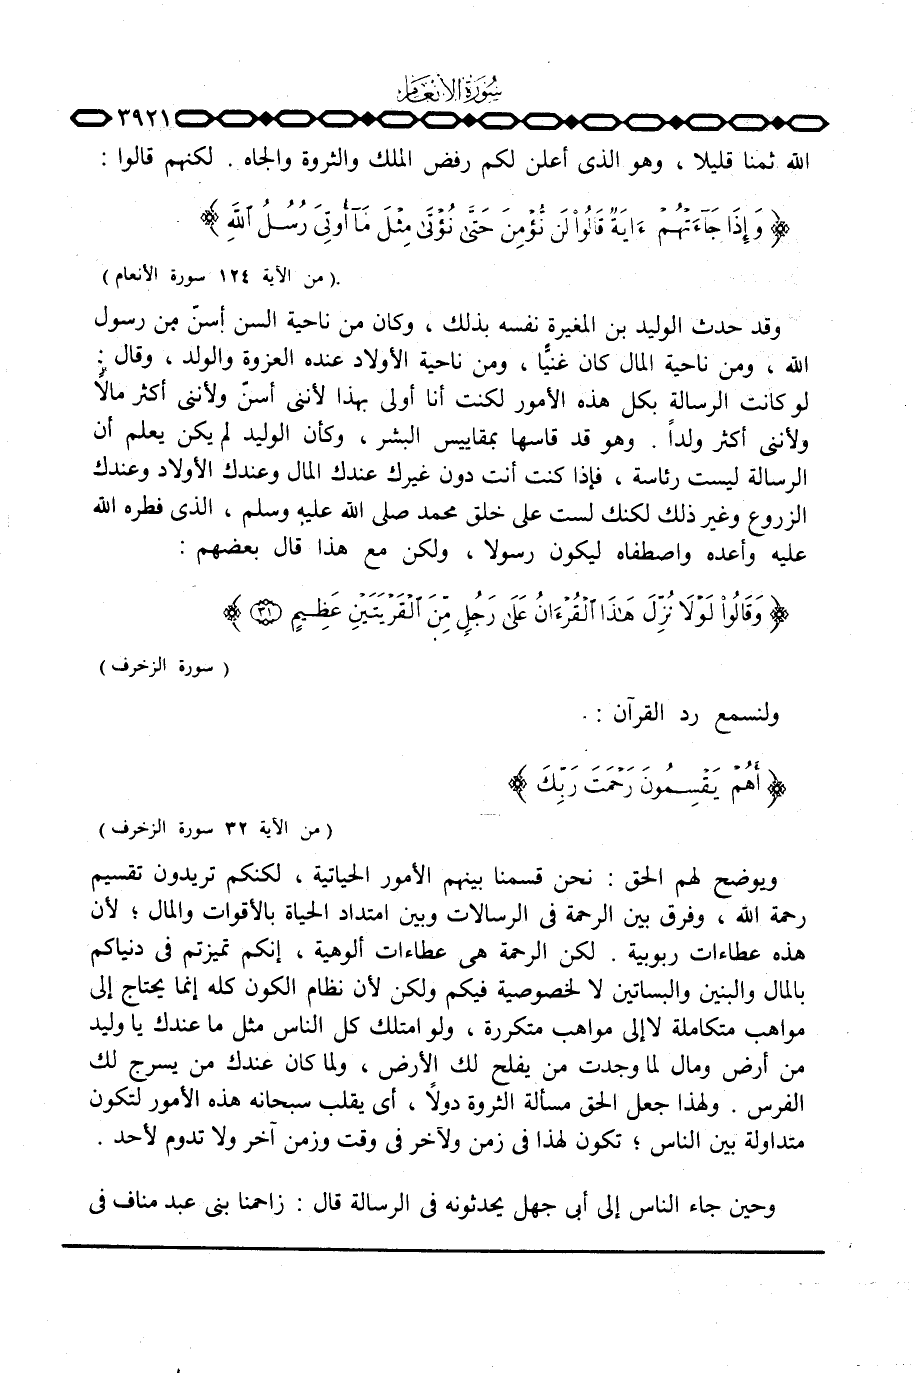 سُورَةُ الأَنْعَامِ
٣٩٢١
الله ثمنا قليلا ، وهو الذى أعلن لكم رفض الملك والثروة والجاه . لكنهم قالوا :
﴿ وَإِذَا جَآءَتْهُمْ ءَايَةٌ قَالُوا۟ لَن نُّؤْمِنَ حَتَّىٰ نُؤْتَىٰ مِثْلَ مَآ أُوتِىَ رُسُلُ ٱللَّهِ ﴾
( من الآية ١٢٤ سورة الأنعام ).
وقد حدث الوليد بن المغيرة نفسه بذلك ، وكان من ناحية السن أسنّ من رسول
الله ، ومن ناحية المال كان غنيًّا ، ومن ناحية الأولاد عنده العزوة والولد ، وقال :
لو كانت الرسالة بكل هذه الأمور لكنت أنا أولى بهذا لأننى أسنّ ولأننى أكثر مالاً
ولأننى أكثر ولداً . وهو قد قاسها بمقاييس البشر ، وكأن الوليد لم يكن يعلم أن
الرسالة ليست رئاسة ، فإذا كنت أنت دون غيرك عندك المال وعندك الأولاد وعندك
الزروع وغير ذلك لكنك لست على خلق محمد صلى الله عليه وسلم ، الذى فطره الله
عليه وأعده واصطفاه ليكون رسولا ، ولكن مع هذا قال بعضهم :
﴿ وَقَالُوا۟ لَوْلَا نُزِّلَ هَـٰذَا ٱلْقُرْءَانُ عَلَىٰ رَجُلٍ مِّنَ ٱلْقَرْيَتَيْنِ عَظِيمٍ ٣١ ﴾
( سورة الزخرف )
ولنسمع رد القرآن :
﴿ أَهُمْ يَقْسِمُونَ رَحْمَتَ رَبِّكَ ﴾
( من الآية ٣٢ سورة الزخرف )
ويوضح لهم الحق : نحن قسمنا بينهم الأمور الحياتية ، لكنكم تريدون تقسيم
رحمة الله ، وفرق بين الرحمة فى الرسالات وبين امتداد الحياة بالأقوات والمال ؛ لأن
هذه عطاءات ربوبية . لكن الرحمة هى عطاءات ألوهية ، إنكم تميزتم فى دنياكم
بالمال والبنين والبساتين لا لخصوصية فيكم ولكن لأن نظام الكون كله إنما يحتاج إلى
مواهب متكاملة لا إلى مواهب متكررة ، ولو امتلك كل الناس مثل ما عندك يا وليد
من أرض ومال لما وجدت من يفلح لك الأرض ، ولما كان عندك من يسرج لك
الفرس . ولهذا جعل الحق مسألة الثروة دولاً ، أى يقلب سبحانه هذه الأمور لتكون
متداولة بين الناس ؛ تكون لهذا فى زمن ولآخر فى وقت وزمن آخر ولا تدوم لأحد .
وحين جاء الناس إلى أبى جهل يحدثونه فى الرسالة قال : زاحمنا بنى عبد مناف فى